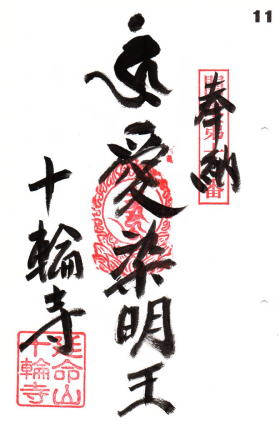 11
奉納
愛染明王
十輪寺
延命山
十輪寺